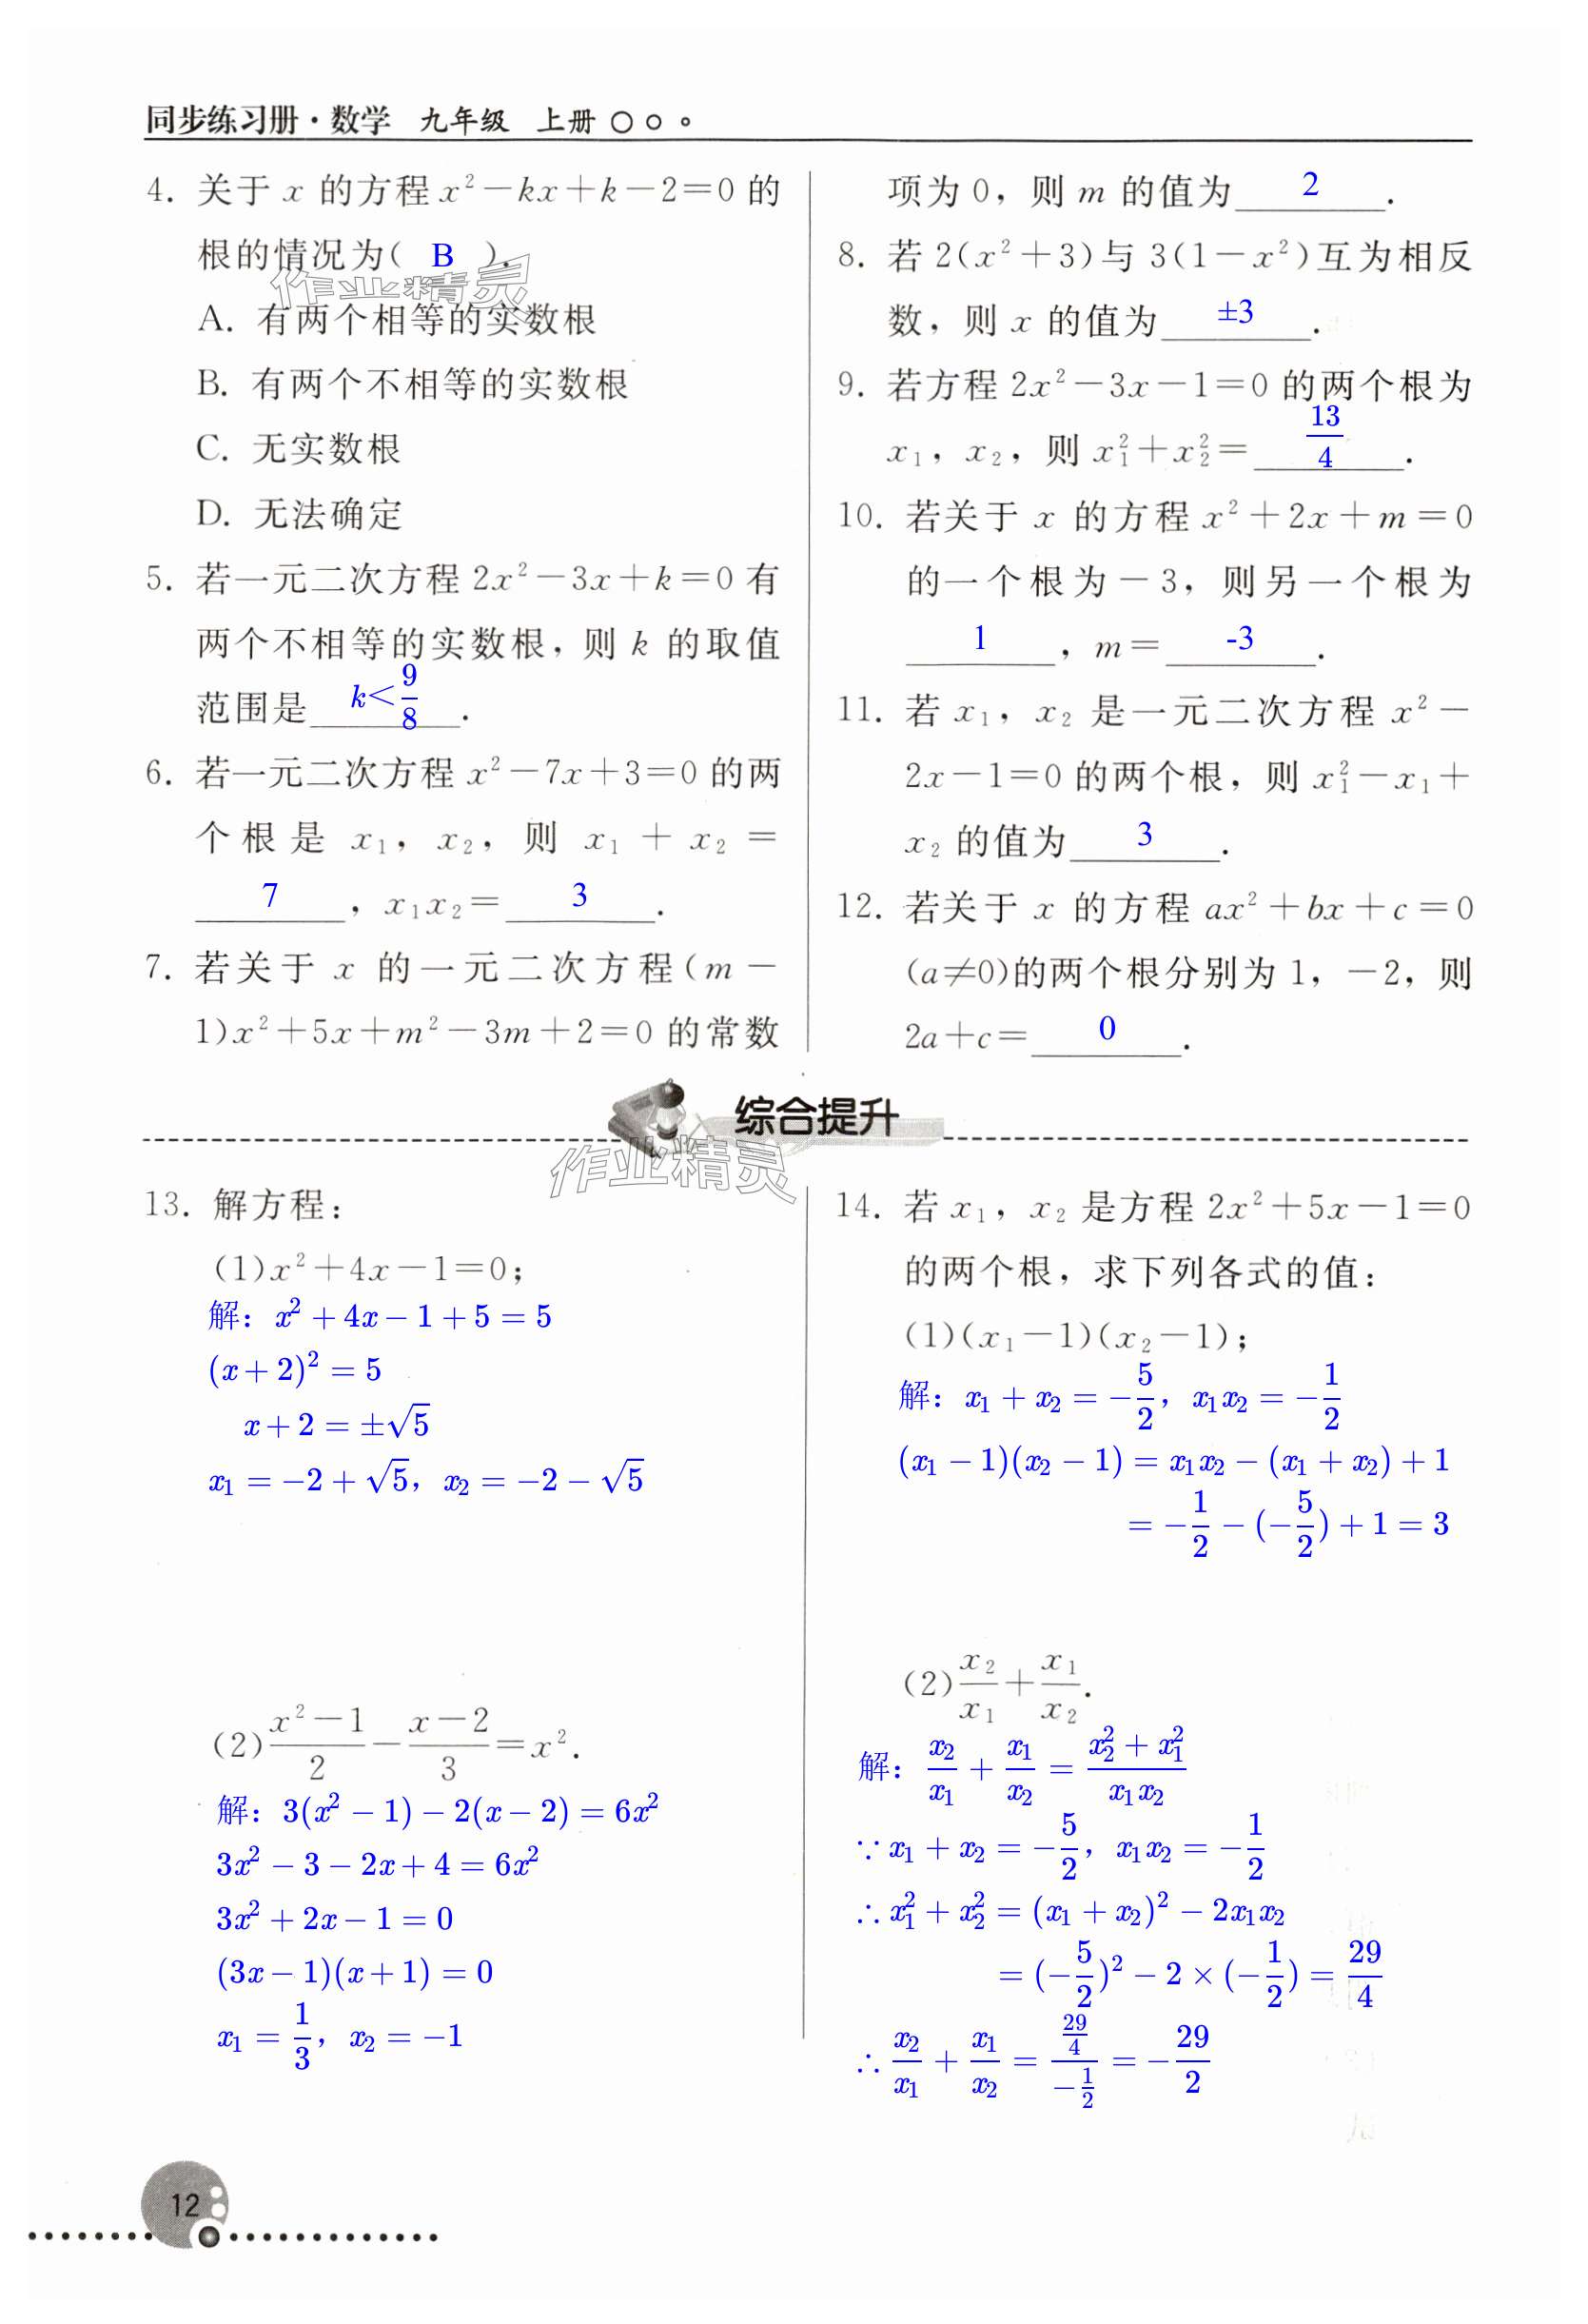 同步练习册·数学 九年级 上册
4. 关于 x 的方程 x²-kx+k-2=0 的
根的情况为( B ).
作业精灵
A. 有两个相等的实数根
B. 有两个不相等的实数根
C. 无实数根
D. 无法确定
5. 若一元二次方程 2x²-3x+k=0 有
两个不相等的实数根，则 k 的取值
范围是 k<9/8 .
6. 若一元二次方程 x²-7x+3=0 的两
个根是 x₁，x₂，则 x₁+x₂=
7 ，x₁x₂= 3 .
7. 若关于 x 的一元二次方程(m-
1)x²+5x+m²-3m+2=0 的常数
项为 0，则 m 的值为 2 .
8. 若 2(x²+3)与 3(1-x²)互为相反
数，则 x 的值为 ±3 .
9. 若方程 2x²-3x-1=0 的两个根为
x₁，x₂，则 x₁²+x₂²= 13/4 .
10. 若关于 x 的方程 x²+2x+m=0
的一个根为-3，则另一个根为
1 ，m= -3 .
11. 若 x₁，x₂ 是一元二次方程 x²-
2x-1=0 的两个根，则 x₁²-x₁+
x₂ 的值为 3 .
12. 若关于 x 的方程 ax²+bx+c=0
(a≠0)的两个根分别为 1，-2，则
2a+c= 0 .
综合提升
作业精灵
13. 解方程：
(1)x²+4x-1=0；
解：x²+4x-1+5=5
(x+2)²=5
x+2=±√5
x₁=-2+√5，x₂=-2-√5
(2)(x²-1)/2-(x-2)/3=x².
解：3(x²-1)-2(x-2)=6x²
3x²-3-2x+4=6x²
3x²+2x-1=0
(3x-1)(x+1)=0
x₁=1/3，x₂=-1
14. 若 x₁，x₂ 是方程 2x²+5x-1=0
的两个根，求下列各式的值：
(1)(x₁-1)(x₂-1)；
解：x₁+x₂=-5/2，x₁x₂=-1/2
(x₁-1)(x₂-1)=x₁x₂-(x₁+x₂)+1
=-1/2-(-5/2)+1=3
(2)x₂/x₁+x₁/x₂.
解：x₂/x₁+x₁/x₂=(x₂²+x₁²)/(x₁x₂)
∵x₁+x₂=-5/2，x₁x₂=-1/2
∴x₁²+x₂²=(x₁+x₂)²-2x₁x₂
=(-5/2)²-2×(-1/2)=29/4
∴x₂/x₁+x₁/x₂=(29/4)/(-1/2)=-29/2
12